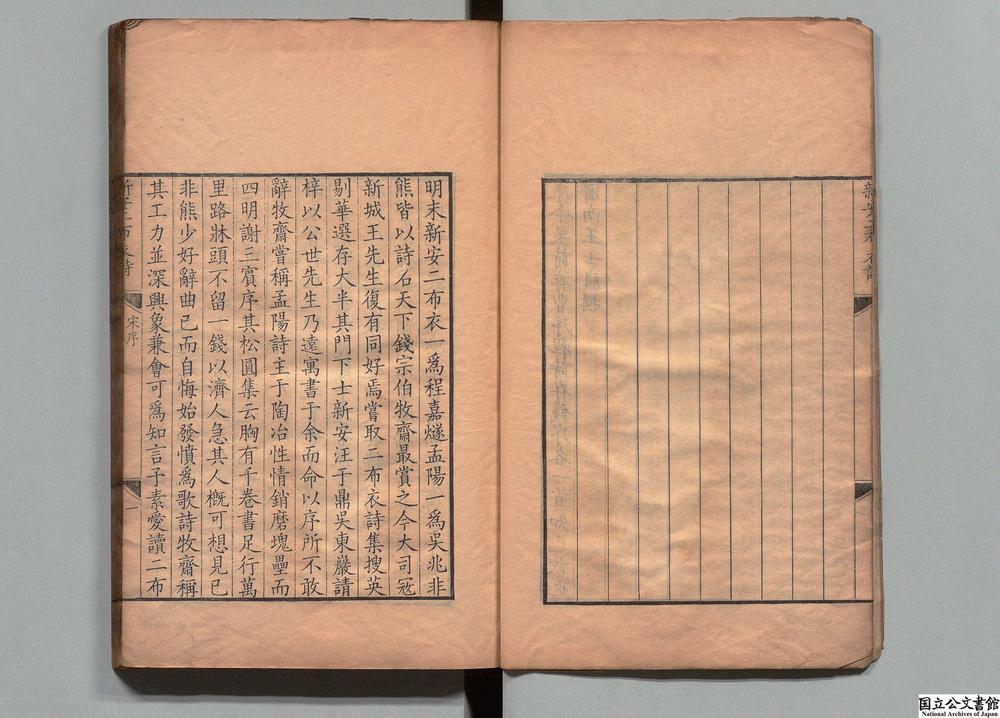 新安二布衣詩
明末新安二布衣一爲程嘉燧孟陽一爲吳兆非
熊皆以詩名天下錢宗伯牧齋最賞之今大司冦
新城王先生復有同好焉嘗取二布衣詩集搜英
剔華選存大半其門下士新安汪于鼎吳東巖請
梓以公世先生乃遠寓書于余而命以序所不敢
辭牧齋嘗稱孟陽詩主于陶冶性情銷磨塊壘而
四明謝三賓序其松圓集云胸有千卷書足行萬
里路牀頭不留一錢以濟人急其人槪可想見已
非熊少好辭曲已而自悔始發憤爲歌詩牧齋稱
其工力並深興象兼會可爲知言予素愛讀二布
新安二布衣詩
宋序
一
国立公文書館
National Archives of Japan